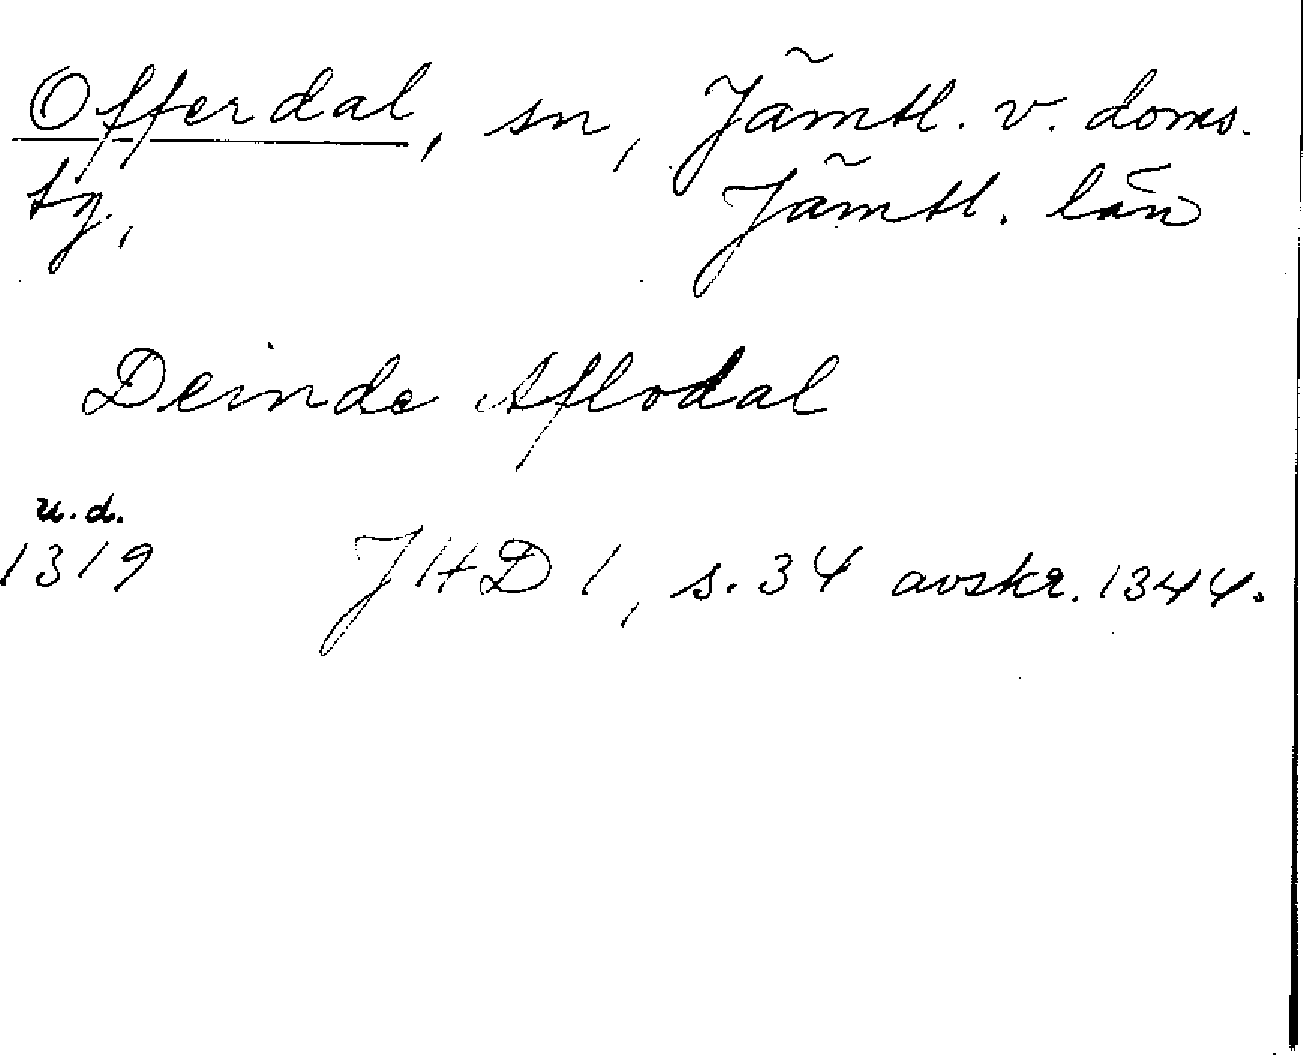 Offerdal, sn, Jämtl. v. doms.
tg., Jämtl. län
Deinde Aflodal
u.d.
1319 JHD 1, s. 34 avskr. 1344.